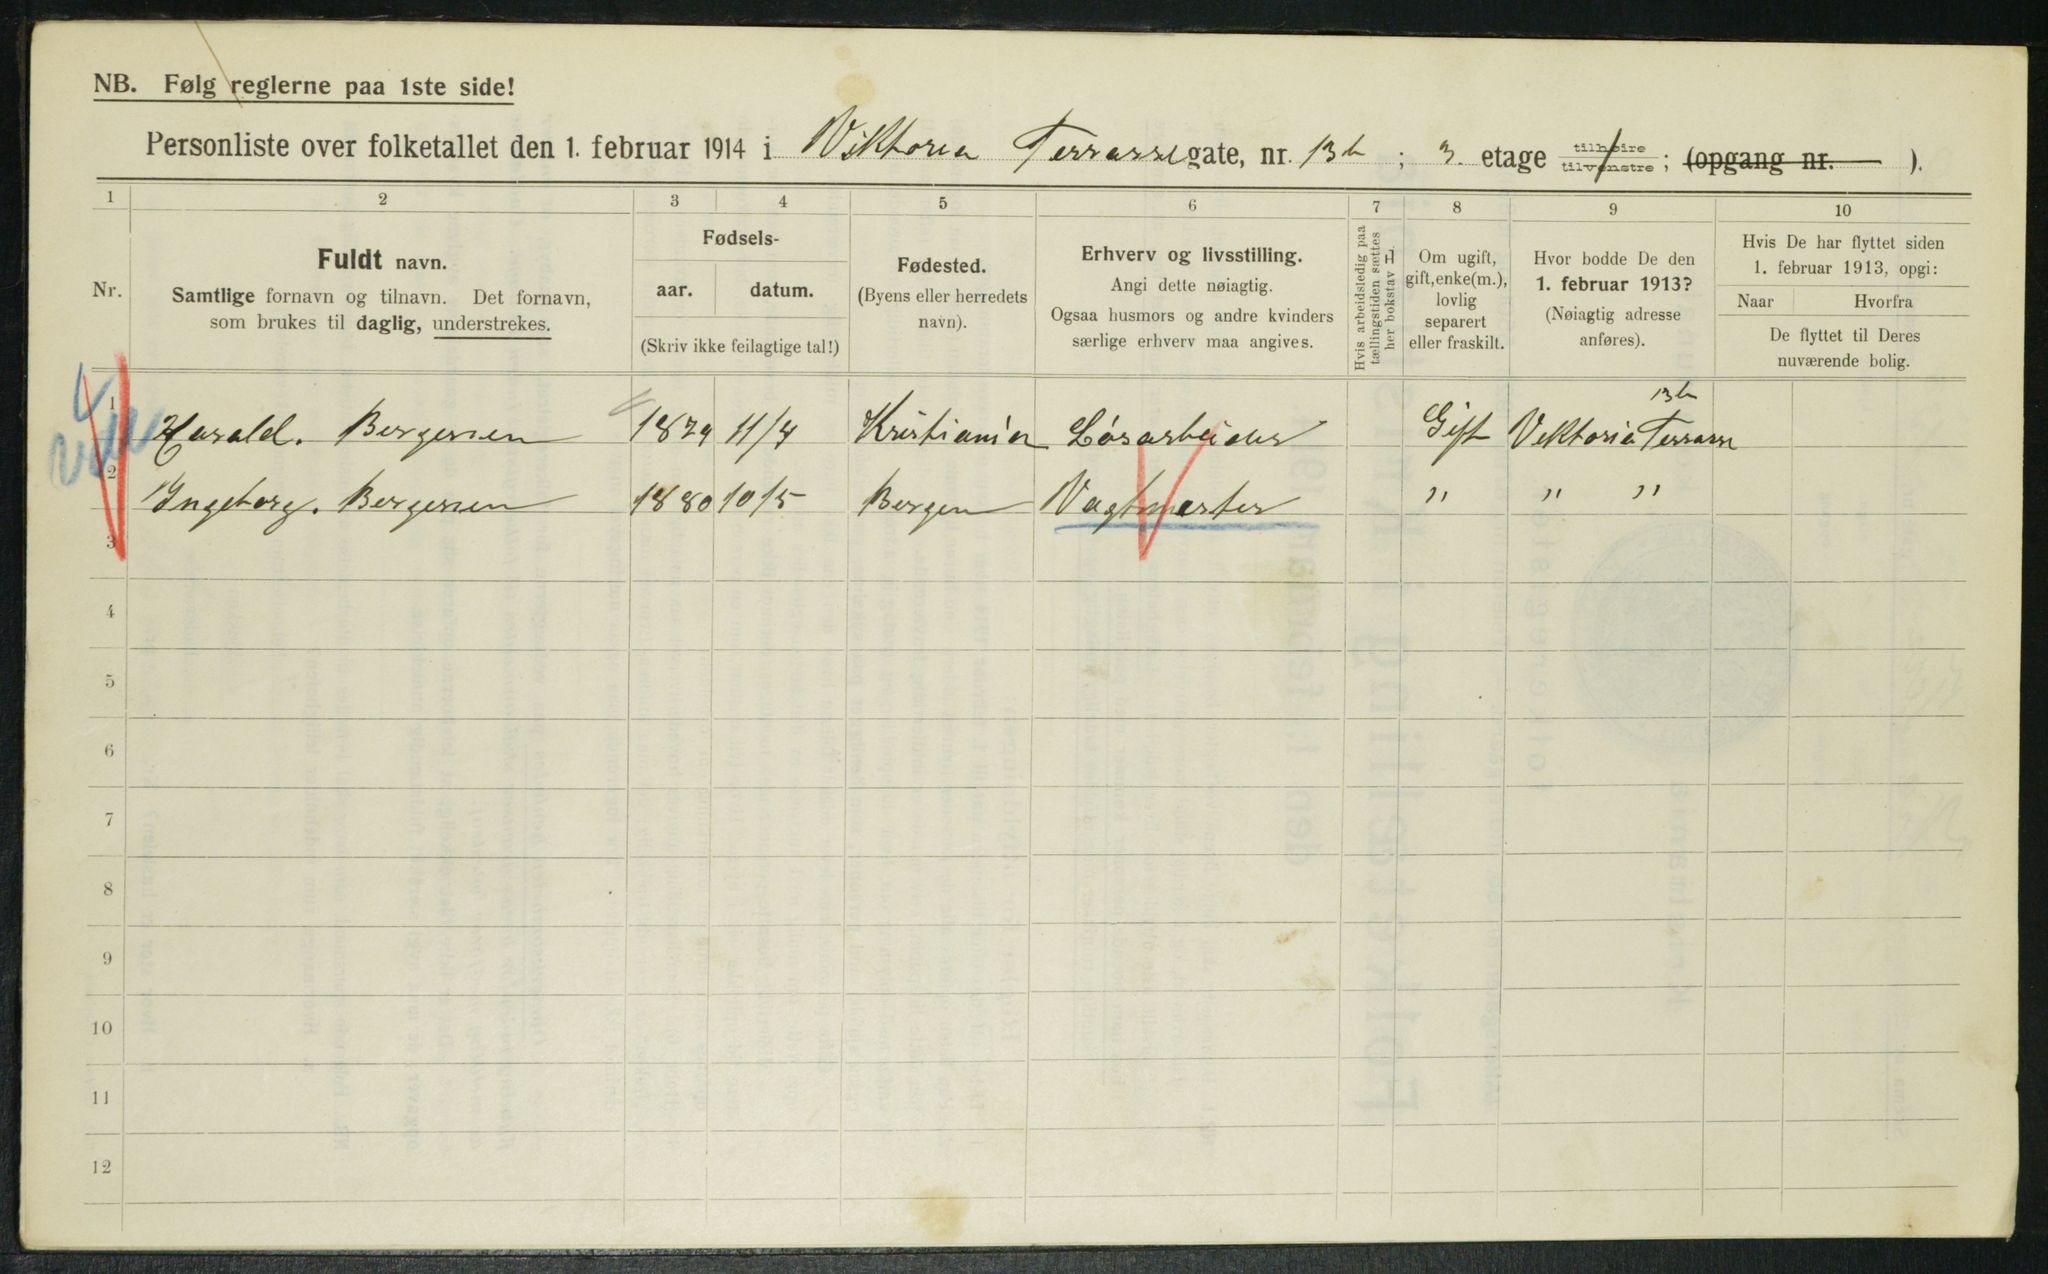 NB. Følg reglerne paa 1ste side!
Personliste over folketallet den 1. februar 1914 i Viktoria Terrasse gate, nr. 13b; 3. etage tilhøire / tilvenstre; (opgang nr. ).
1 2 3 4 5 6 7 8 9 10
Nr.
Fuldt navn.
Samtlige fornavn og tilnavn. Det fornavn,
som brukes til daglig, understrekes.
Fødsels-
aar. datum.
(Skriv ikke feilagtige tal!)
Fødested.
(Byens eller herredets
navn).
Erhverv og livsstilling.
Angi dette nøiagtig.
Ogsaa husmors og andre kvinders
særlige erhverv maa angives.
Hvis arbeidsledig paa
tællingstiden sættes
her bokstav L.
Om ugift,
gift, enke(m.),
lovlig
separert
eller fraskilt.
Hvor bodde De den
1. februar 1913?
(Nøiagtig adresse
anføres).
Hvis De har flyttet siden
1. februar 1913, opgi:
Naar Hvorfra
De flyttet til Deres
nuværende bolig.
13b
1 Harald. Bergersen 1879 11/4 Kristiania Løsarbeider Gift Viktoria Terrasse
2 Ingeborg. Bergersen 1880 10/5 Bergen Vagtmester " " "
3
4
5
6
7
8
9
10
11
12